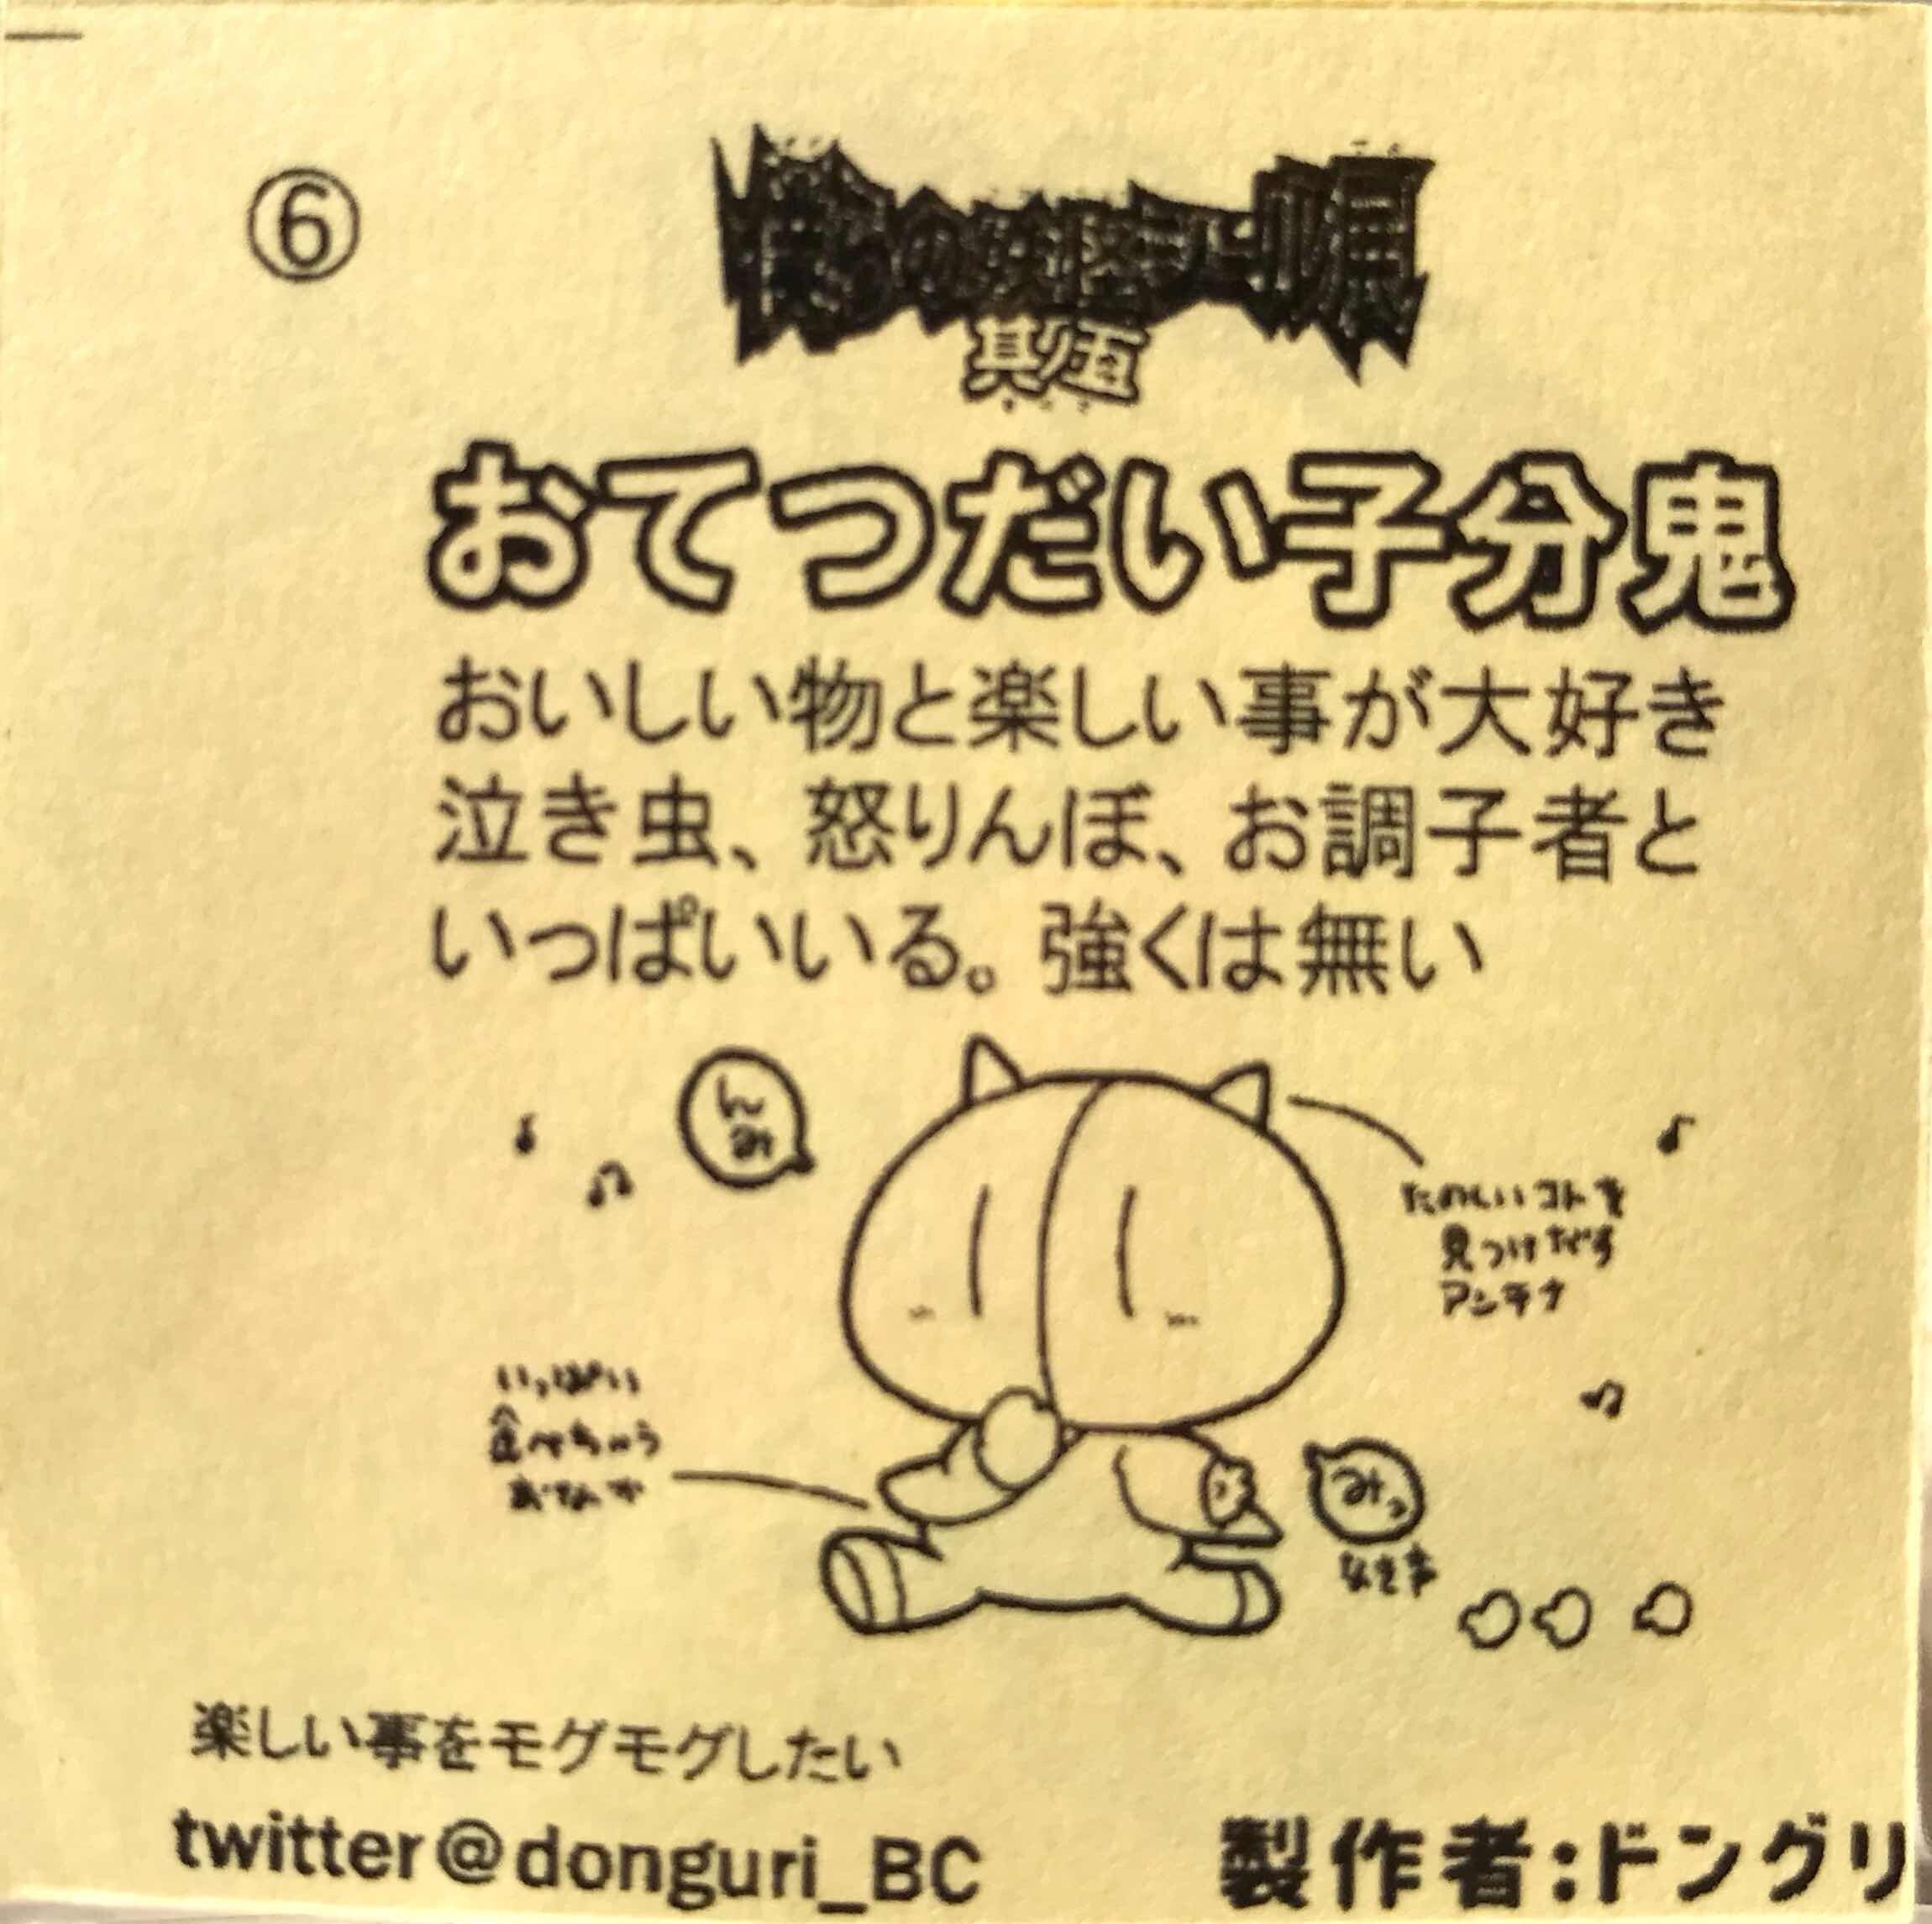 ⑥
僕らの妖怪シール展
其ノ五
おてつだい子分鬼
おいしい物と楽しい事が大好き
泣き虫、怒りんぼ、お調子者と
いっぱいいる。強くは無い
んみ
たのしいコトを
見つけだす
アンテナ
いっぱい
食べちゃう
おなか
みっ
なきま
楽しい事をモグモグしたい
twitter@donguri_BC
製作者:ドングリ